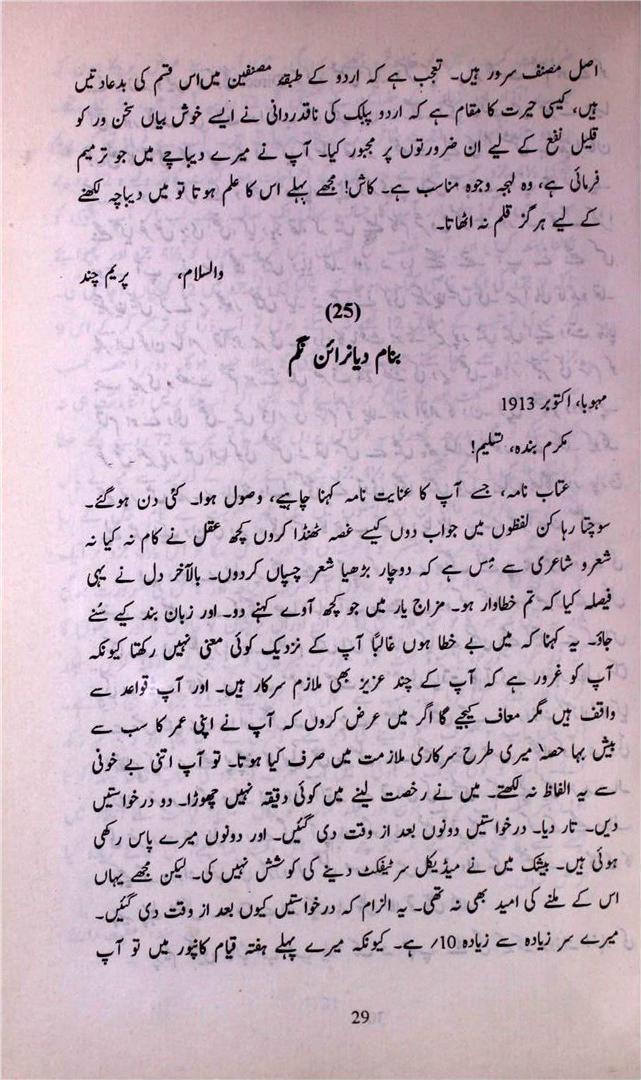 اصل مصنف سرور ہیں۔ تعجب ہے کہ اردو کے طبقۂ مصنفین میں اس قسم کی بدعادتیں
ہیں، کیسی حیرت کا مقام ہے کہ اردو پبلک کی ناقدردانی نے ایسے خوش بیاں سخن ور کو
قلیل نفع کے لیے ان ضرورتوں پر مجبور کیا۔ آپ نے میرے دیباچے میں جو ترمیم
فرمائی ہے، وہ لہجہ وجوہ مناسب ہے۔ کاش! مجھے پہلے اس کا علم ہوتا تو میں دیباچہ لکھنے
کے لیے ہرگز قلم نہ اٹھاتا۔
والسلام، پریم چند
(25)
بنام دیانرائن نگم
مہوبا، اکتوبر 1913
مکرم بندہ، تسلیم!
عتاب نامہ، جسے آپ کا عنایت نامہ کہنا چاہیے، وصول ہوا۔ کئی دن ہوگئے۔
سوچتا رہا کن لفظوں میں جواب دوں کیسے غصہ ٹھنڈا کروں کچھ عقل نے کام نہ کیا نہ
شعرو شاعری سے مِس ہے کہ دوچار بڑھیا شعر چسپاں کردوں۔ بالآخر دل نے یہی
فیصلہ کیا کہ تم خطاوار ہو۔ مزاج یار میں جو کچھ آوے کہنے دو۔ اور زبان بند کیے سُنے
جاؤ۔ یہ کہنا کہ میں بے خطا ہوں غالباً آپ کے نزدیک کوئی معنی نہیں رکھتا کیونکہ
آپ کو غرور ہے کہ آپ کے چند عزیز بھی ملازم سرکار ہیں۔ اور آپ قواعد سے
واقف ہیں مگر معاف کیجیے گا اگر میں عرض کروں کہ آپ نے اپنی عمر کا سب سے
بیش بہا حصہ میری طرح سرکاری ملازمت میں صرف کیا ہوتا۔ تو آپ اتنی بے خونی
سے یہ الفاظ نہ لکھتے۔ میں نے رخصت لینے میں کوئی دقیقہ نہیں چھوڑا۔ دو درخواستیں
دیں۔ تار دیا۔ درخواستیں دونوں بعد از وقت دی گئیں۔ اور دونوں میرے پاس رکھی
ہوئی ہیں۔ بیشک میں نے میڈیکل سرٹیفکٹ دینے کی کوشش نہیں کی۔ لیکن مجھے یہاں
اس کے ملنے کی امید بھی نہ تھی۔ یہ الزام کہ درخواستیں کیوں بعد از وقت دی گئیں۔
میرے سر زیادہ سے زیادہ 10/ ہے۔ کیونکہ میرے پہلے ہفتہ قیام کانپور میں تو آپ
29